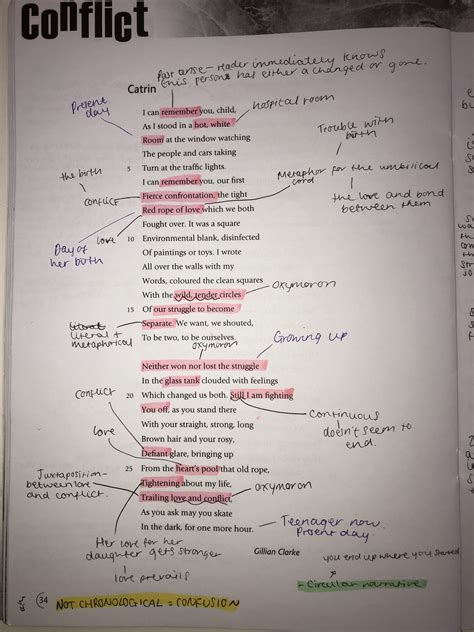 Conflict
Past tense - reader immediately knows
this person has either a changed or gone.
Catrin
Present
day
I can remember you, child,
hospital room
As I stood in a hot, white
Room at the window watching
Trouble with
birth
The people and cars taking
5 Turn at the traffic lights.
the birth
I can remember you, our first
Metaphor for the umbilical
cord
conflict
Fierce confrontation, the tight
the love and bond
between them
love
Red rope of love which we both
Day of
her birth
Fought over. It was a square
10 Environmental blank, disinfected
Of paintings or toys. I wrote
All over the walls with my
Words, coloured the clean squares
With the wild, tender circles
oxymoron
15 Of our struggle to become
literal +
metaphorical
Separate. We want, we shouted,
To be two, to be ourselves.
Growing up
oxymoron
Neither won nor lost the struggle
In the glass tank clouded with feelings
conflict
20 Which changed us both. Still I am fighting
You off, as you stand there
Continuous
doesn't seem to
end.
love
With your straight, strong, long
Brown hair and your rosy,
Defiant glare, bringing up
25 From the heart's pool that old rope,
Juxtaposition -
between love
and conflict.
Tightening about my life,
Trailing love and conflict,
oxymoron
As you ask may you skate
In the dark, for one more hour.
Teenager now.
Present day.
Her love for her
daughter gets stronger
Gillian Clarke
love prevails
you end up where you started
- Circular narrative
34
NOT CHRONOLOGICAL = CONFUSION